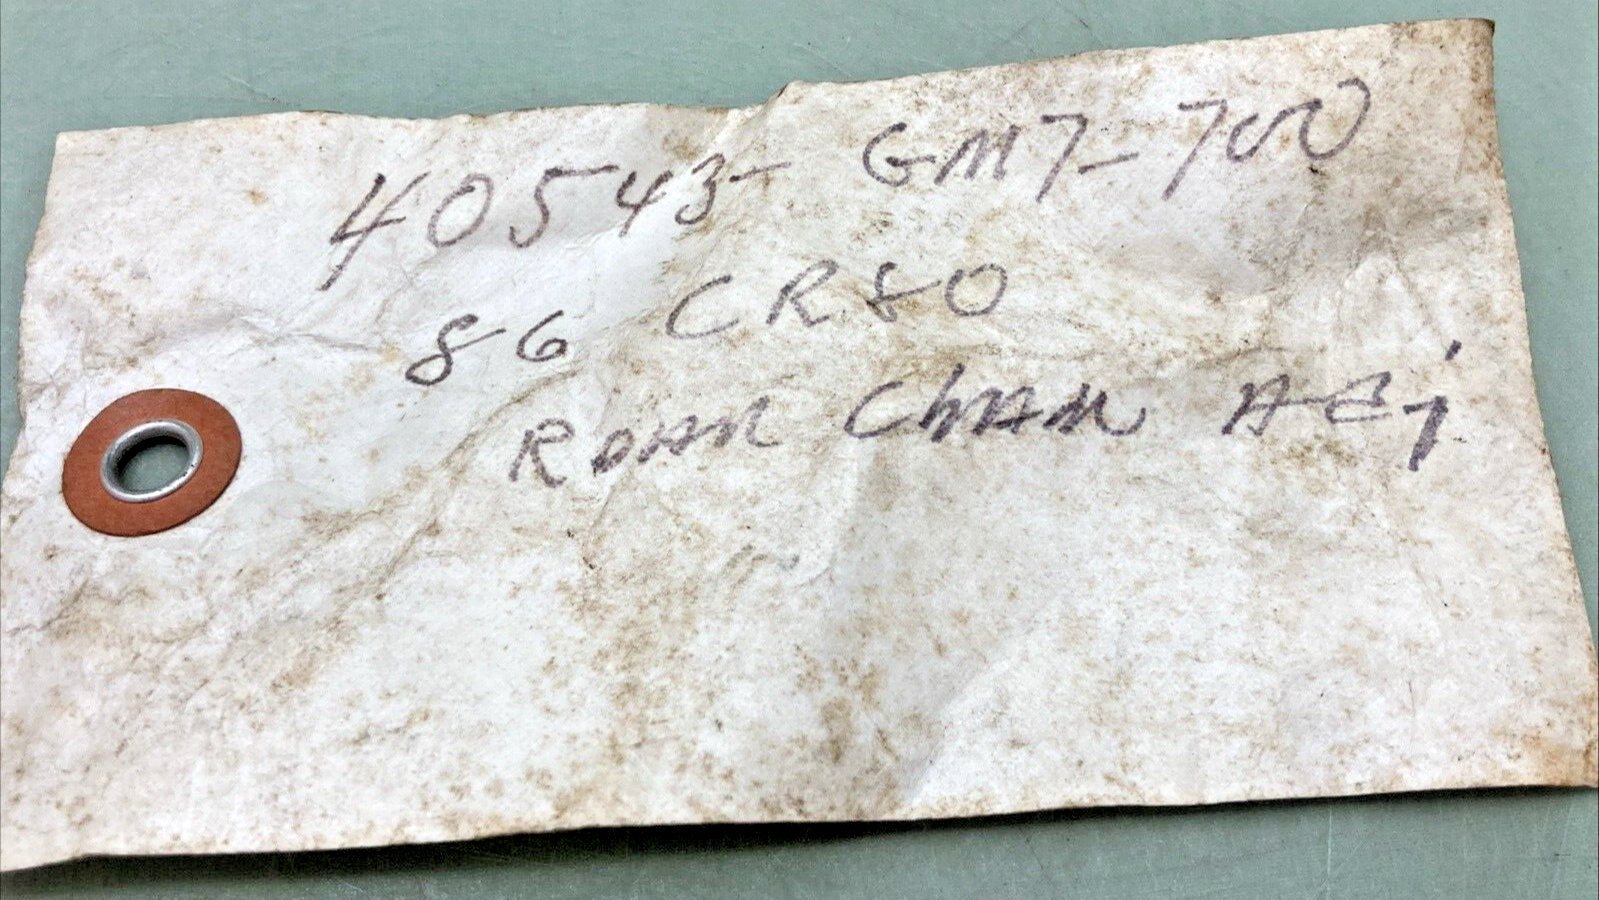 40543-GM7-700
86 CR80
REAR CHAIN ADj